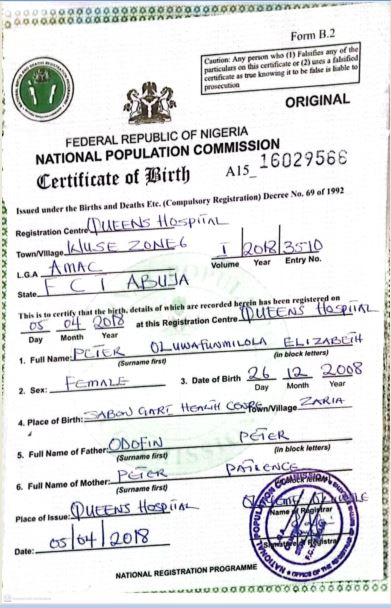 Form B.2
Caution: Any person who (1) Falsifies any of the
particulars on this certificate or (2) uses a falsified
certificate as true knowing it to be false is liable to
prosecution
ORIGINAL
FEDERAL REPUBLIC OF NIGERIA
NATIONAL POPULATION COMMISSION
Certificate of Birth A15_16029566
Issued under the Births and Deaths Etc. (Compulsory Registration) Decree No. 69 of 1992
Registration Centre QUEENS HOSPITAL
Town/Village WUSE ZONE 6 1 2018 3510
Volume Year Entry No.
L.G.A AMAC
State FCT ABUJA
This is to certify that the birth, details of which are recorded herein has been registered on
05 04 2018 at this Registration Centre QUEENS HOSPITAL
Day Month Year
1. Full Name: PETER OLUWAFUNMILOLA ELIZABETH
(Surname first) (in block letters)
2. Sex: FEMALE 3. Date of Birth 26 12 2008
Day Month Year
4. Place of Birth: SABON GARI HEALTH Town/Village ZARIA
5. Full Name of Father: ODOFIN PETER
(Surname first) (in block letters)
6. Full Name of Mother: PETER PATIENCE
(Surname first) (in block letters)
Place of Issue: QUEENS HOSPITAL
Name of Registrar
Date: 05/04/2018
Signature of Registrar
NATIONAL POPULATION COMMISSION
NATIONAL REGISTRATION PROGRAMME